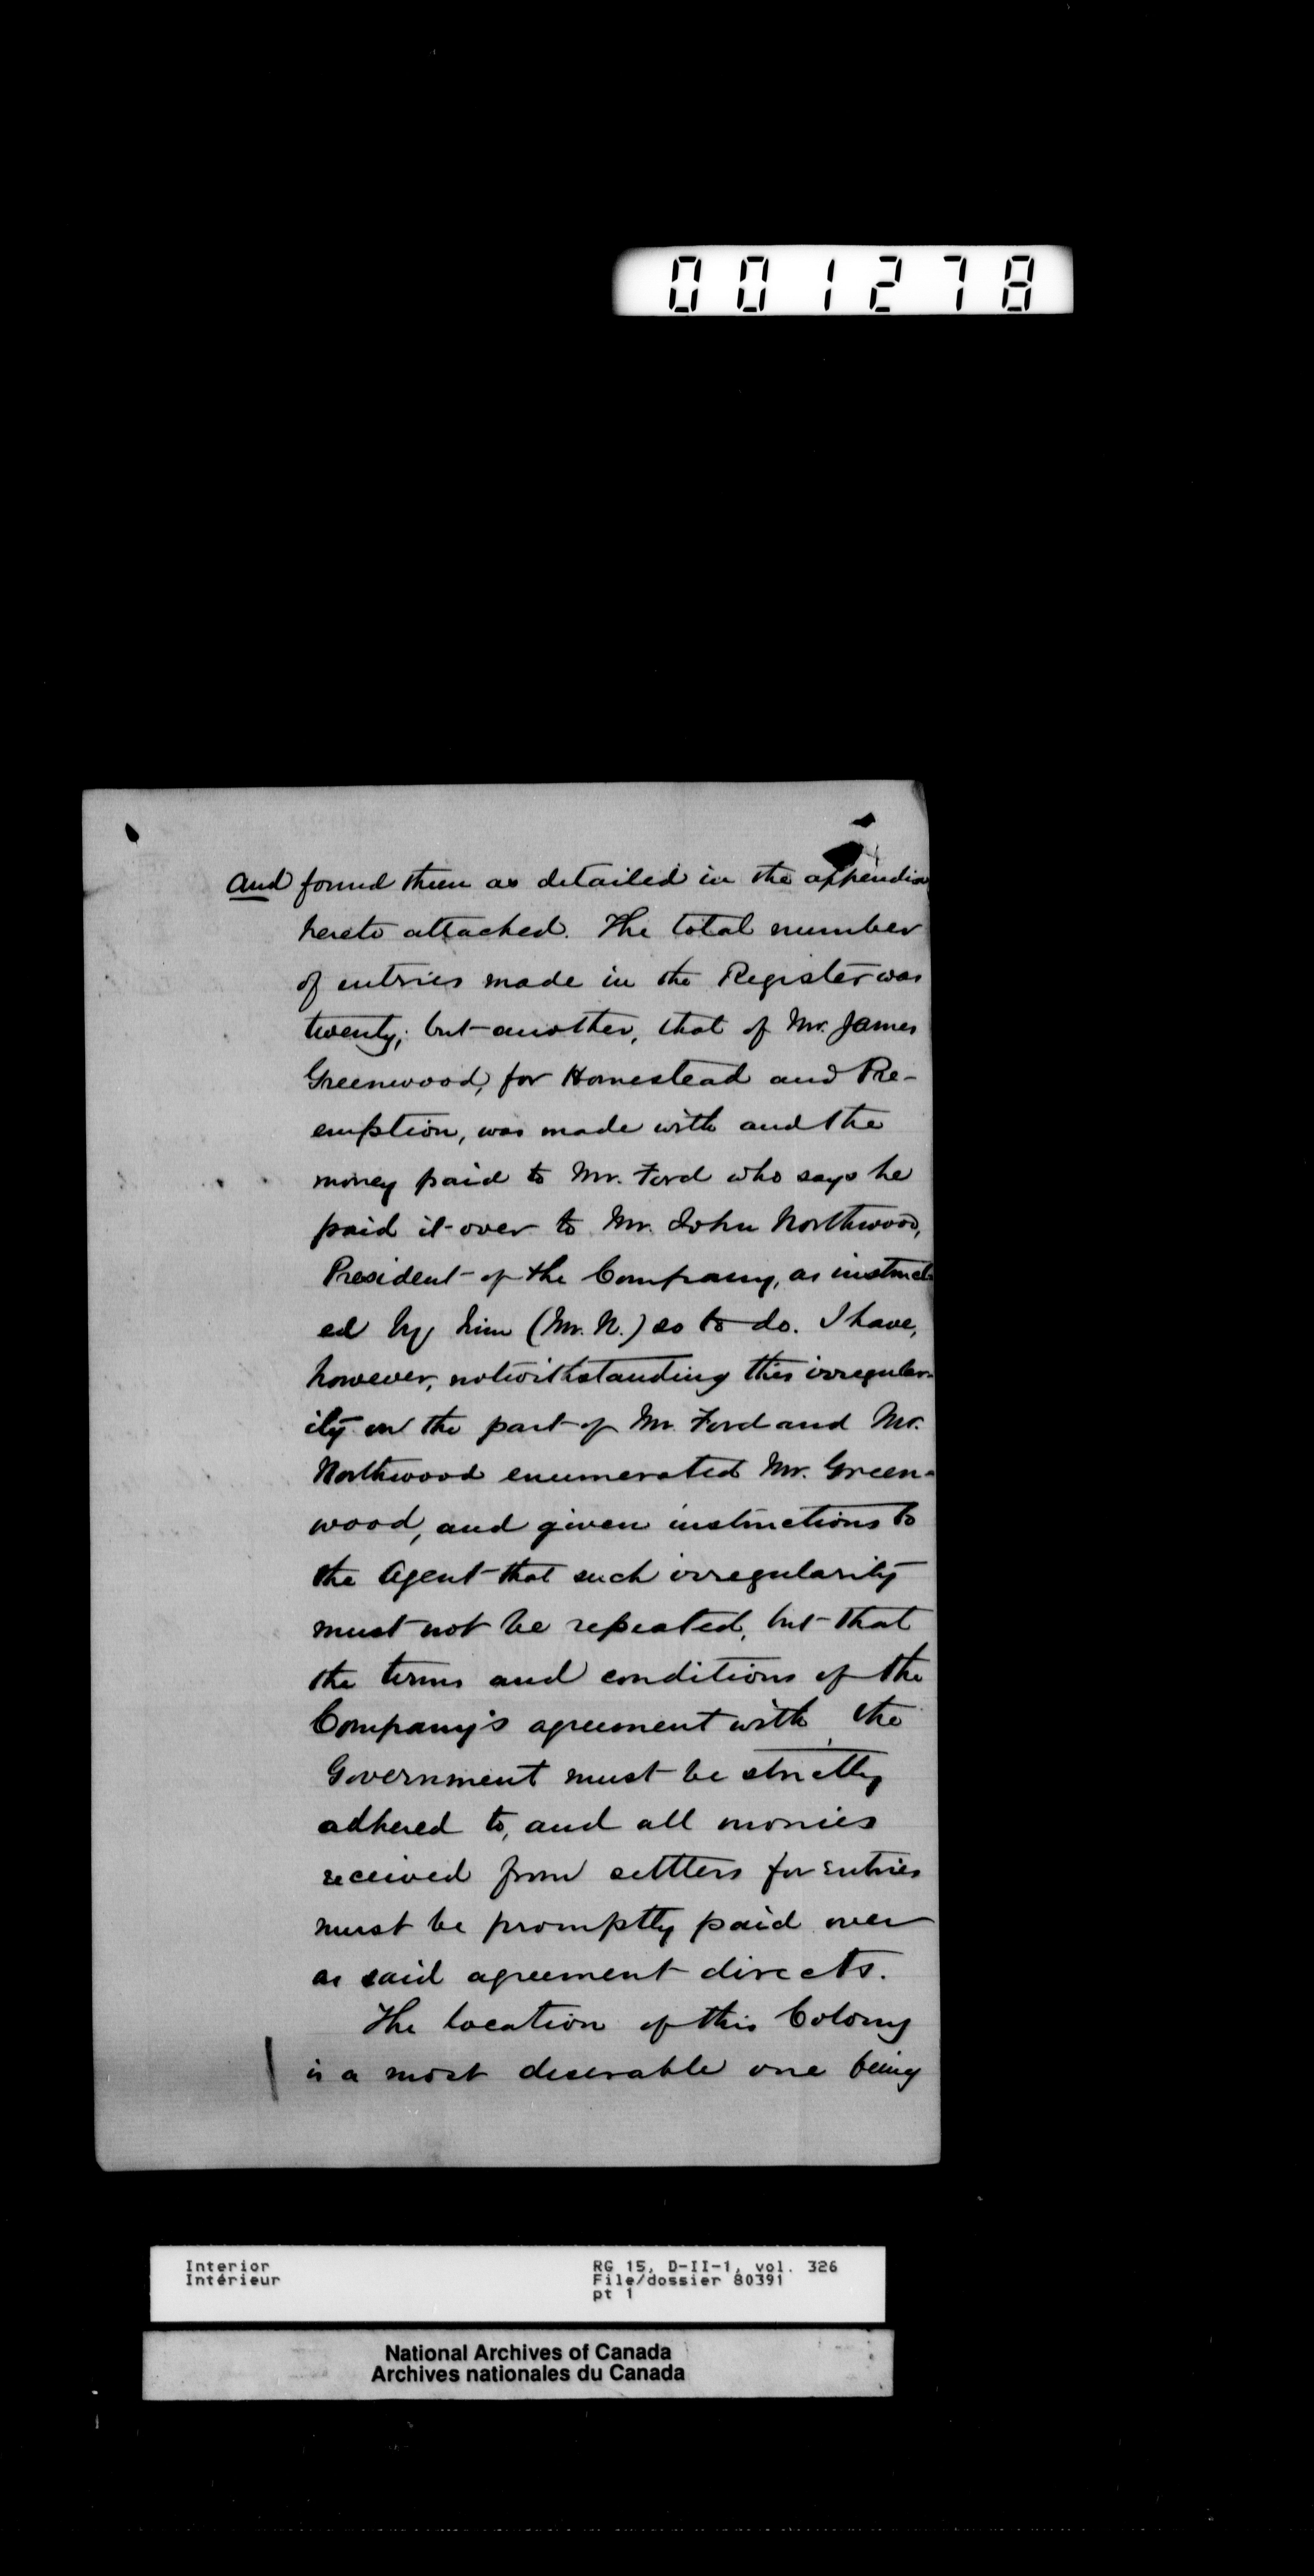 001278
and found them as detailed in the appendix
hereto attached. The total number
of entries made in the Register was
twenty; but another, that of Mr. James
Greenwood, for Homestead and Pre-
emption, was made with and the
money paid to Mr. Ford who says he
paid it over to Mr. John Northwood,
President of the Company, as instruct-
ed by him (Mr. N.) so to do. I have,
however, notwithstanding this irregular-
ity on the part of Mr. Ford and Mr.
Northwood enumerated Mr. Green-
wood, and given instructions to
the Agent that such irregularity
must not be repeated, but that
the terms and conditions of the
Company's agreement with the
Government must be strictly
adhered to, and all monies
received from settlers for entries
must be promptly paid over
as said agreement directs.
The location of this Colony
is a most desirable one being
Interior
Intérieur
RG 15, D-II-1, vol. 326
File/dossier 80391
pt 1
National Archives of Canada
Archives nationales du Canada